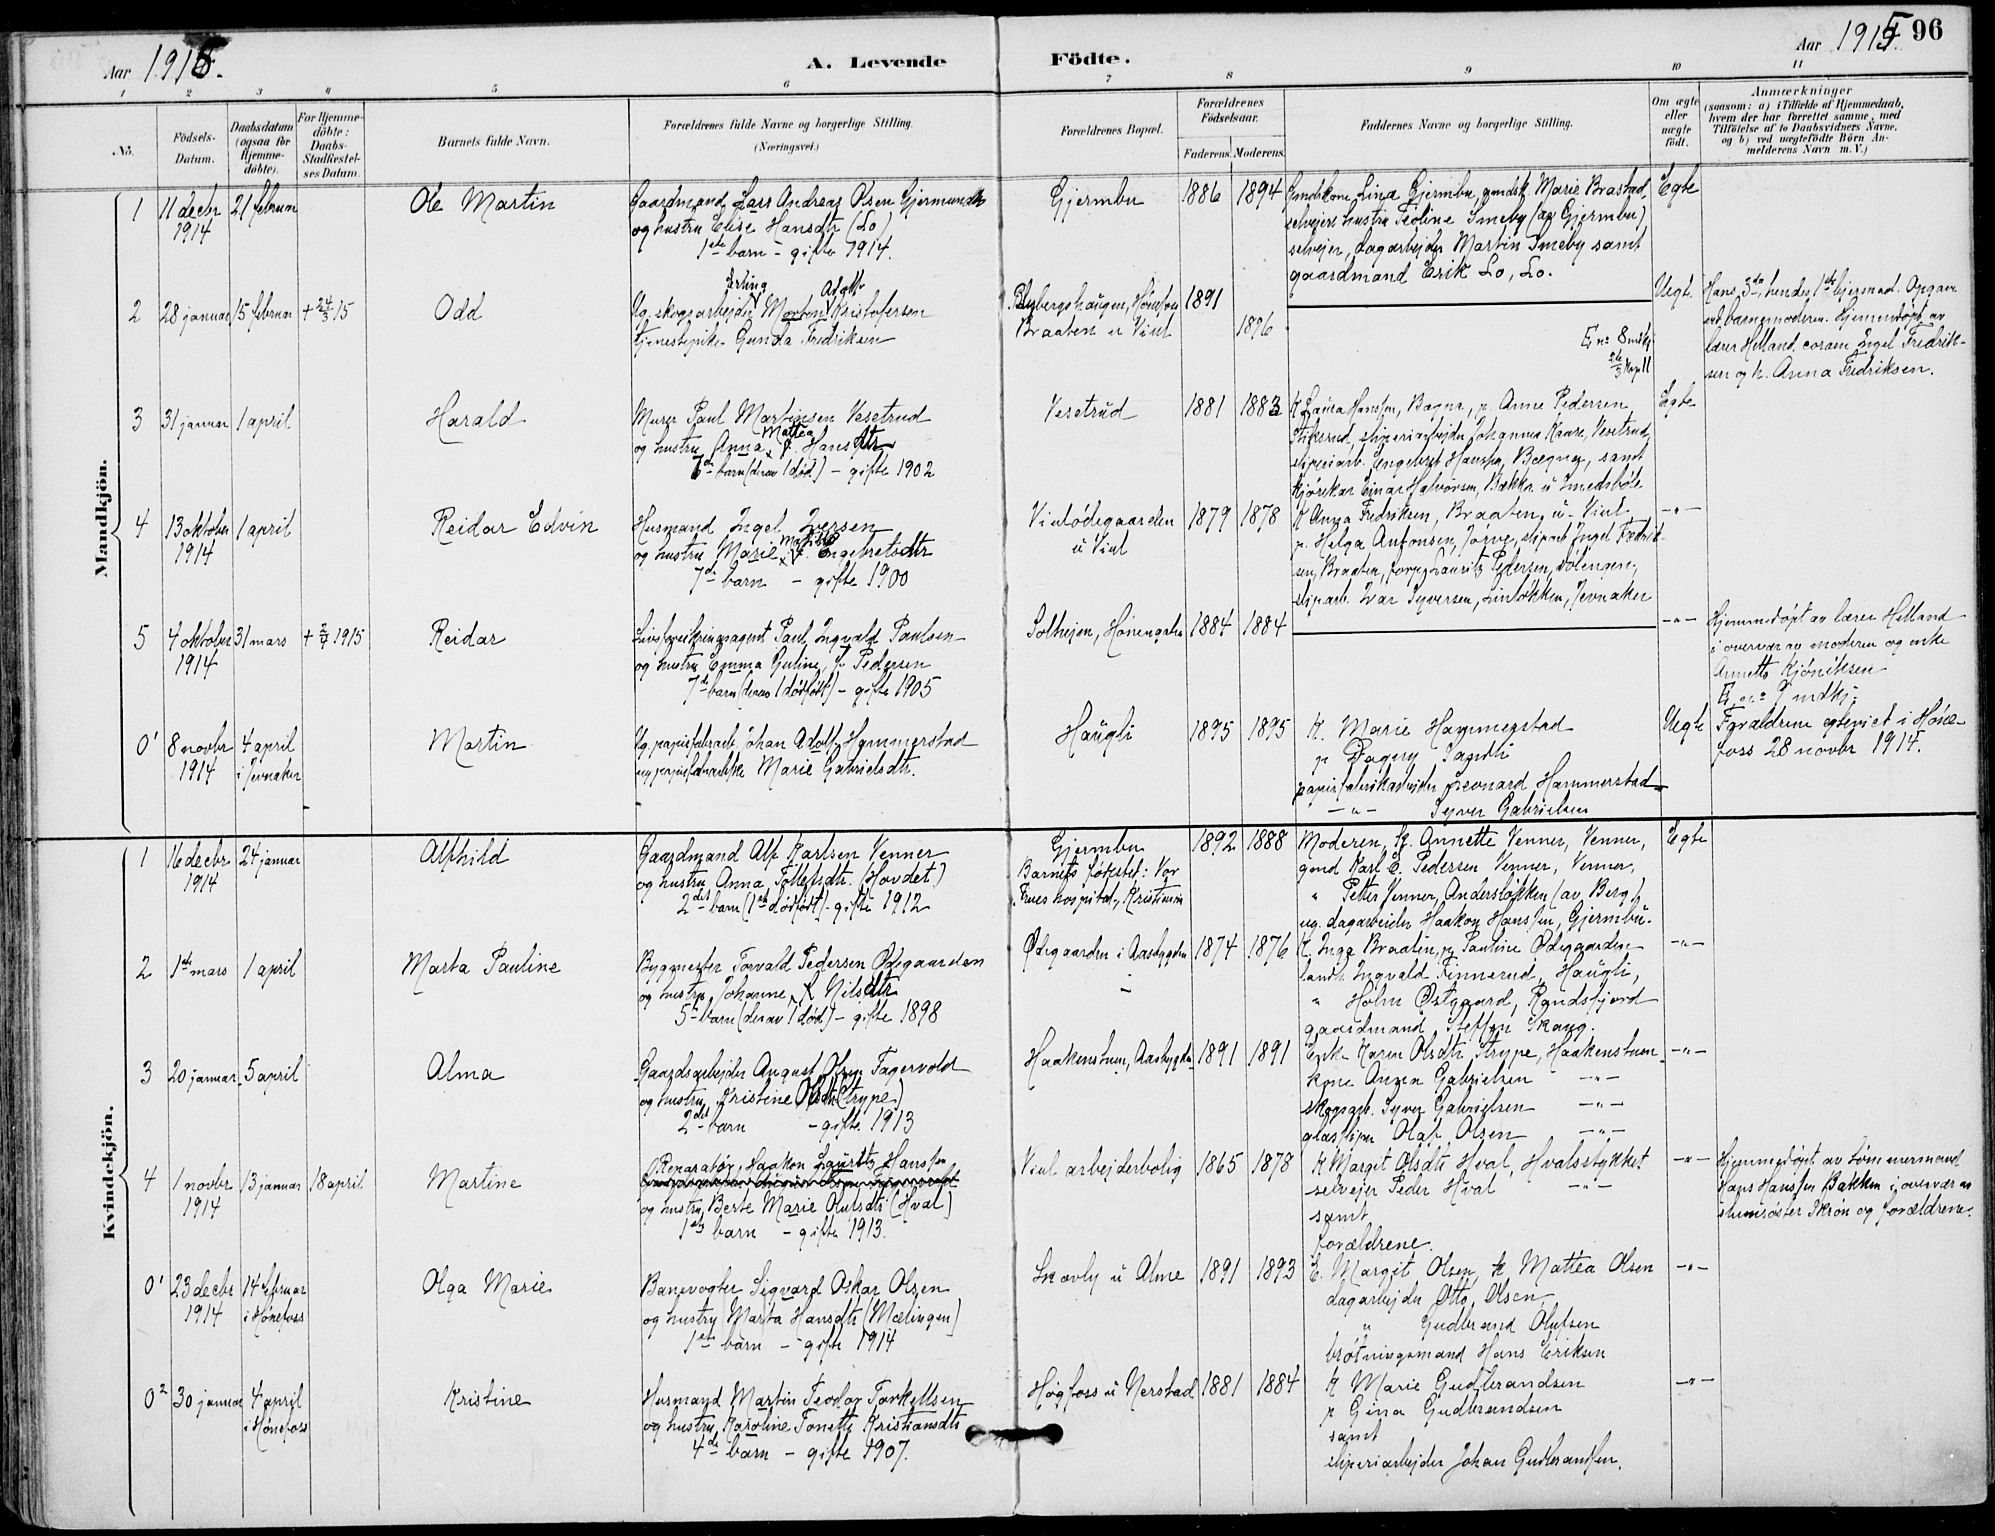 Aar 1915.
A. Levende
Födte.
Aar 1915.
96
1 2 3 4 5 6 7 8 9 10 11
No.
Födsels-Datum.
Daabsdatum (ogsaa for Hjemme-döbte).
For Hjemme-döbte: Daabs-Stadfæstel-ses Datum.
Barnets fulde Navn.
Forældrenes fulde Navne og borgerlige Stilling.
(Næringsvei.)
Forældrenes Bopæl.
Forældrenes Födselsaar.
Faderens. Moderens.
Faddernes Navne og borgerlige Stilling.
Om ægte eller uægte födt.
Anmærkninger
(saasom: a) i Tilfælde af Hjemmedaab,
hvem der har forrettet samme, med
Tilföielse af to Daabsvidners Navne,
og b) ved uægtefödte Börn An-
melderens Navn m. V.)
Mandkjön.
1 11 decbr 1914 21 februar
Ole Martin
Gaardmand Lars Andreas Olsen Gjermundbo
og hustru Elise Hansdtr (Lo)
1ste barn - gifte 1914.
Gjermbu 1886 1894
Gmdskone Lina Gjermbu, gmdsk. Marie Brastad,
selveiers hustru Teoline Smeby (av Gjermbu)
selveier, dagarbejder Martin Smeby samt
gaardmand Erik Lo, Lo.
Egte
2 28 januar 15 februar + 24/3 15
Odd
Ug. skogsarbejder Morten Kristofersen
tjenestepike Gunda Fredriksen
Braaten u Vint
1891
1896
No 8 mdkj.
Uegte
Hans 3die, hendes 1ste leiermaal. Opgave
ved barnemoderen. Hjemmedøpt av
lærer Helland, coram Ingel Fredrik-
sen og k. Anna Fredriksen.
3 31 januar 1 april
Harald
Murer Paul Martinsen Vesetrud
og hustru Anna Mattea Hansdtr
7de barn (derav 1 død) - gifte 1902
Vesetrud 1881 1883
K Laura Hanssen, Bagna, p. Anne Pedersen
sliperiarbejder Johannes Kaare, Vesetrud,
sliperiarb. Engebret Hanssen, Bægna, samt
kjørekar Einar Halvorsen, Bækka u Smedsbøle
Egte
4 13 oktober 1914 1 april
Reidar Edvin
Husmand Ingel Iversen
og hustru Marie Matilde Engebretsdtr
7de barn - gifte 1900
Vintødegaarden u Vint 1879 1878
K Anna Fredriksen, Braaten u Vint
p. Helga Antonsen, sliparb Ingel Fredrik-
sen, Braaten, Lauritz Pedersen,
sliparb. Ivar Syversen, Jevnaker
-"-
5 4 oktober 1914 31 mars + 1915
Reidar
Livsforsikringsagent Paul Ingvald Paulsen
og hustru Emma Guline, f. Pedersen
7de barn (derav 1 dødfødt) - gifte 1905
Solheim, Hønengata 1884 1884
-"-
Hjemmedøpt av lærer Helland
i overvær av moderen og enke
Annette Kjøniksen
No 9 mdkj.
0¹ 8 novbr 1914 4 april i Jevnaker
Martin
Ug. papirfabrarb. Johan Adolf Hammerstad
ug papirfabrarbske Marie Gabrielsdtr.
Haugli 1895 1895
K. Marie Hammerstad
p Dagny Sandli
papirfabrikarbeider Leonard Hammerstad
-"- Syver Gabrielsen
Uegte
Forældrene egteviet i Høne-
foss 28 novbr 1914.
Kvindekjön.
1 16 decbr 1914 24 januar
Alfhild
Gaardmand Alf Karlsen Venner
og hustru Anna Tollefsdtr. (Hovdet)
2det barn (1ste dødfødt) - gifte 1912
Gjermbu
Barnets fødested: Vor
Frues hospital, Kristiania
1892 1888
Moderen, K. Annette Venner, Venner,
gmd Karl E. Pedersen Venner, Venner,
" Petter Venner, Andersløkken (av Berg),
ug. dagarbeider Haakon Hanssen, Gjermbu.
Egte
2 1ste mars 1 april
Marta Pauline
Byggmester Torvald Pedersen Ødegaarden
og hustru Johanne Nilsdtr
5te barn (derav 1 død) - gifte 1898
Ødegaarden i Aasbygden 1874 1876
K. Inga Braaten, p. Pauline Ødegaarden
landh. Ingvald Finnerud, Haugli,
" Holm Østgaard, Randsfjord
gaardmand Steffen Skaug.
-"-
3 20 januar 5 april
Alma
Gaardsarbejder August Olsen Fagervold
og hustru Kristine Olsdtr (Strype)
2det barn - gifte 1913
Haakenstuen, Aasbygden 1891 1891
Enke Karen Olsdtr Strype, Haakenstuen
kone Anna Gabrielsen -"-
skogsarb. Syver Gabrielsen -"-
glassliper Olaf Olsen -"-
-"-
4 1 novbr 1914 13 januar 18 april
Martine
Reparatør Haakon Laurits Hanssen
og hustru Berte Marie Olufsdtr (Hval)
1ste barn - gifte 1913.
Vint arbejderbolig 1865 1878
K Margit Olsdtr Hval, Hvalsstykket
selvejer Peder Hval -"-
samt
forældrene.
-"-
Hjemmedøpt av tømmermand
Hans Hanssen Bakken i overvær av
Skrøn og forældrene.
0¹ 23 decbr 1914 14 februar i Hønefoss
Olga Marie
Banevogter Sigvard Oskar Olsen
og hustru Marta Hansdtr (Mælingen)
1ste barn - gifte 1914
Skavly u Alme 1891 1893
E. Margit Olsen, k Mattea Olsen
dagarbejder Otto Olsen,
" Gudbrand Olufsen
brøtningsmand Hans Eriksen
-"-
0² 30 januar 4 april i Hønefoss
Kristine
Husmand Martin Teodor Torkellsen
og hustru Karoline Tonette Kristiansdtr
4de barn - gifte 1907.
Høgfoss u Nerstad 1881 1884
K Marie Gudbrandsen
p Gina Gudbrandsen
samt
sliperiarbejder Johan Gudbrandsen.
-"-